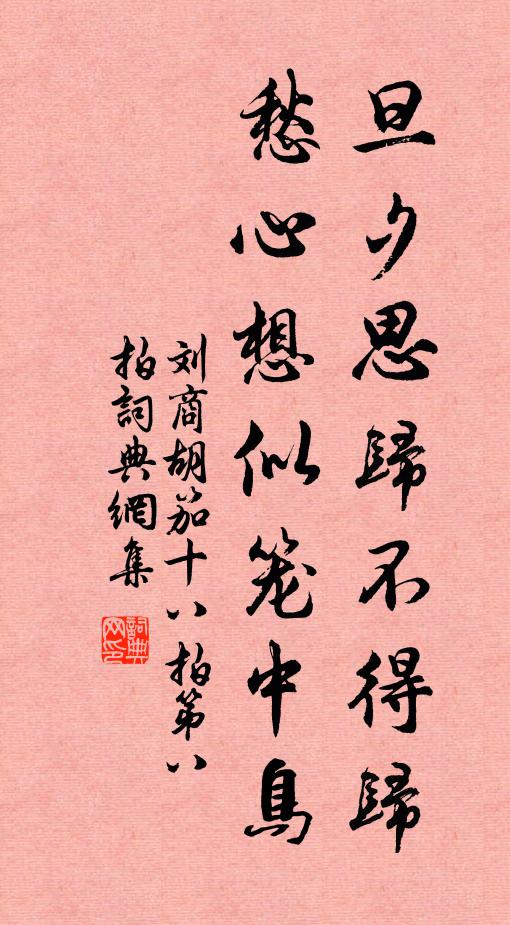 旦夕思歸不得歸
愁心想似笼中鳥
刘商胡笳十八拍第八
拍詞典網集
詞典网印